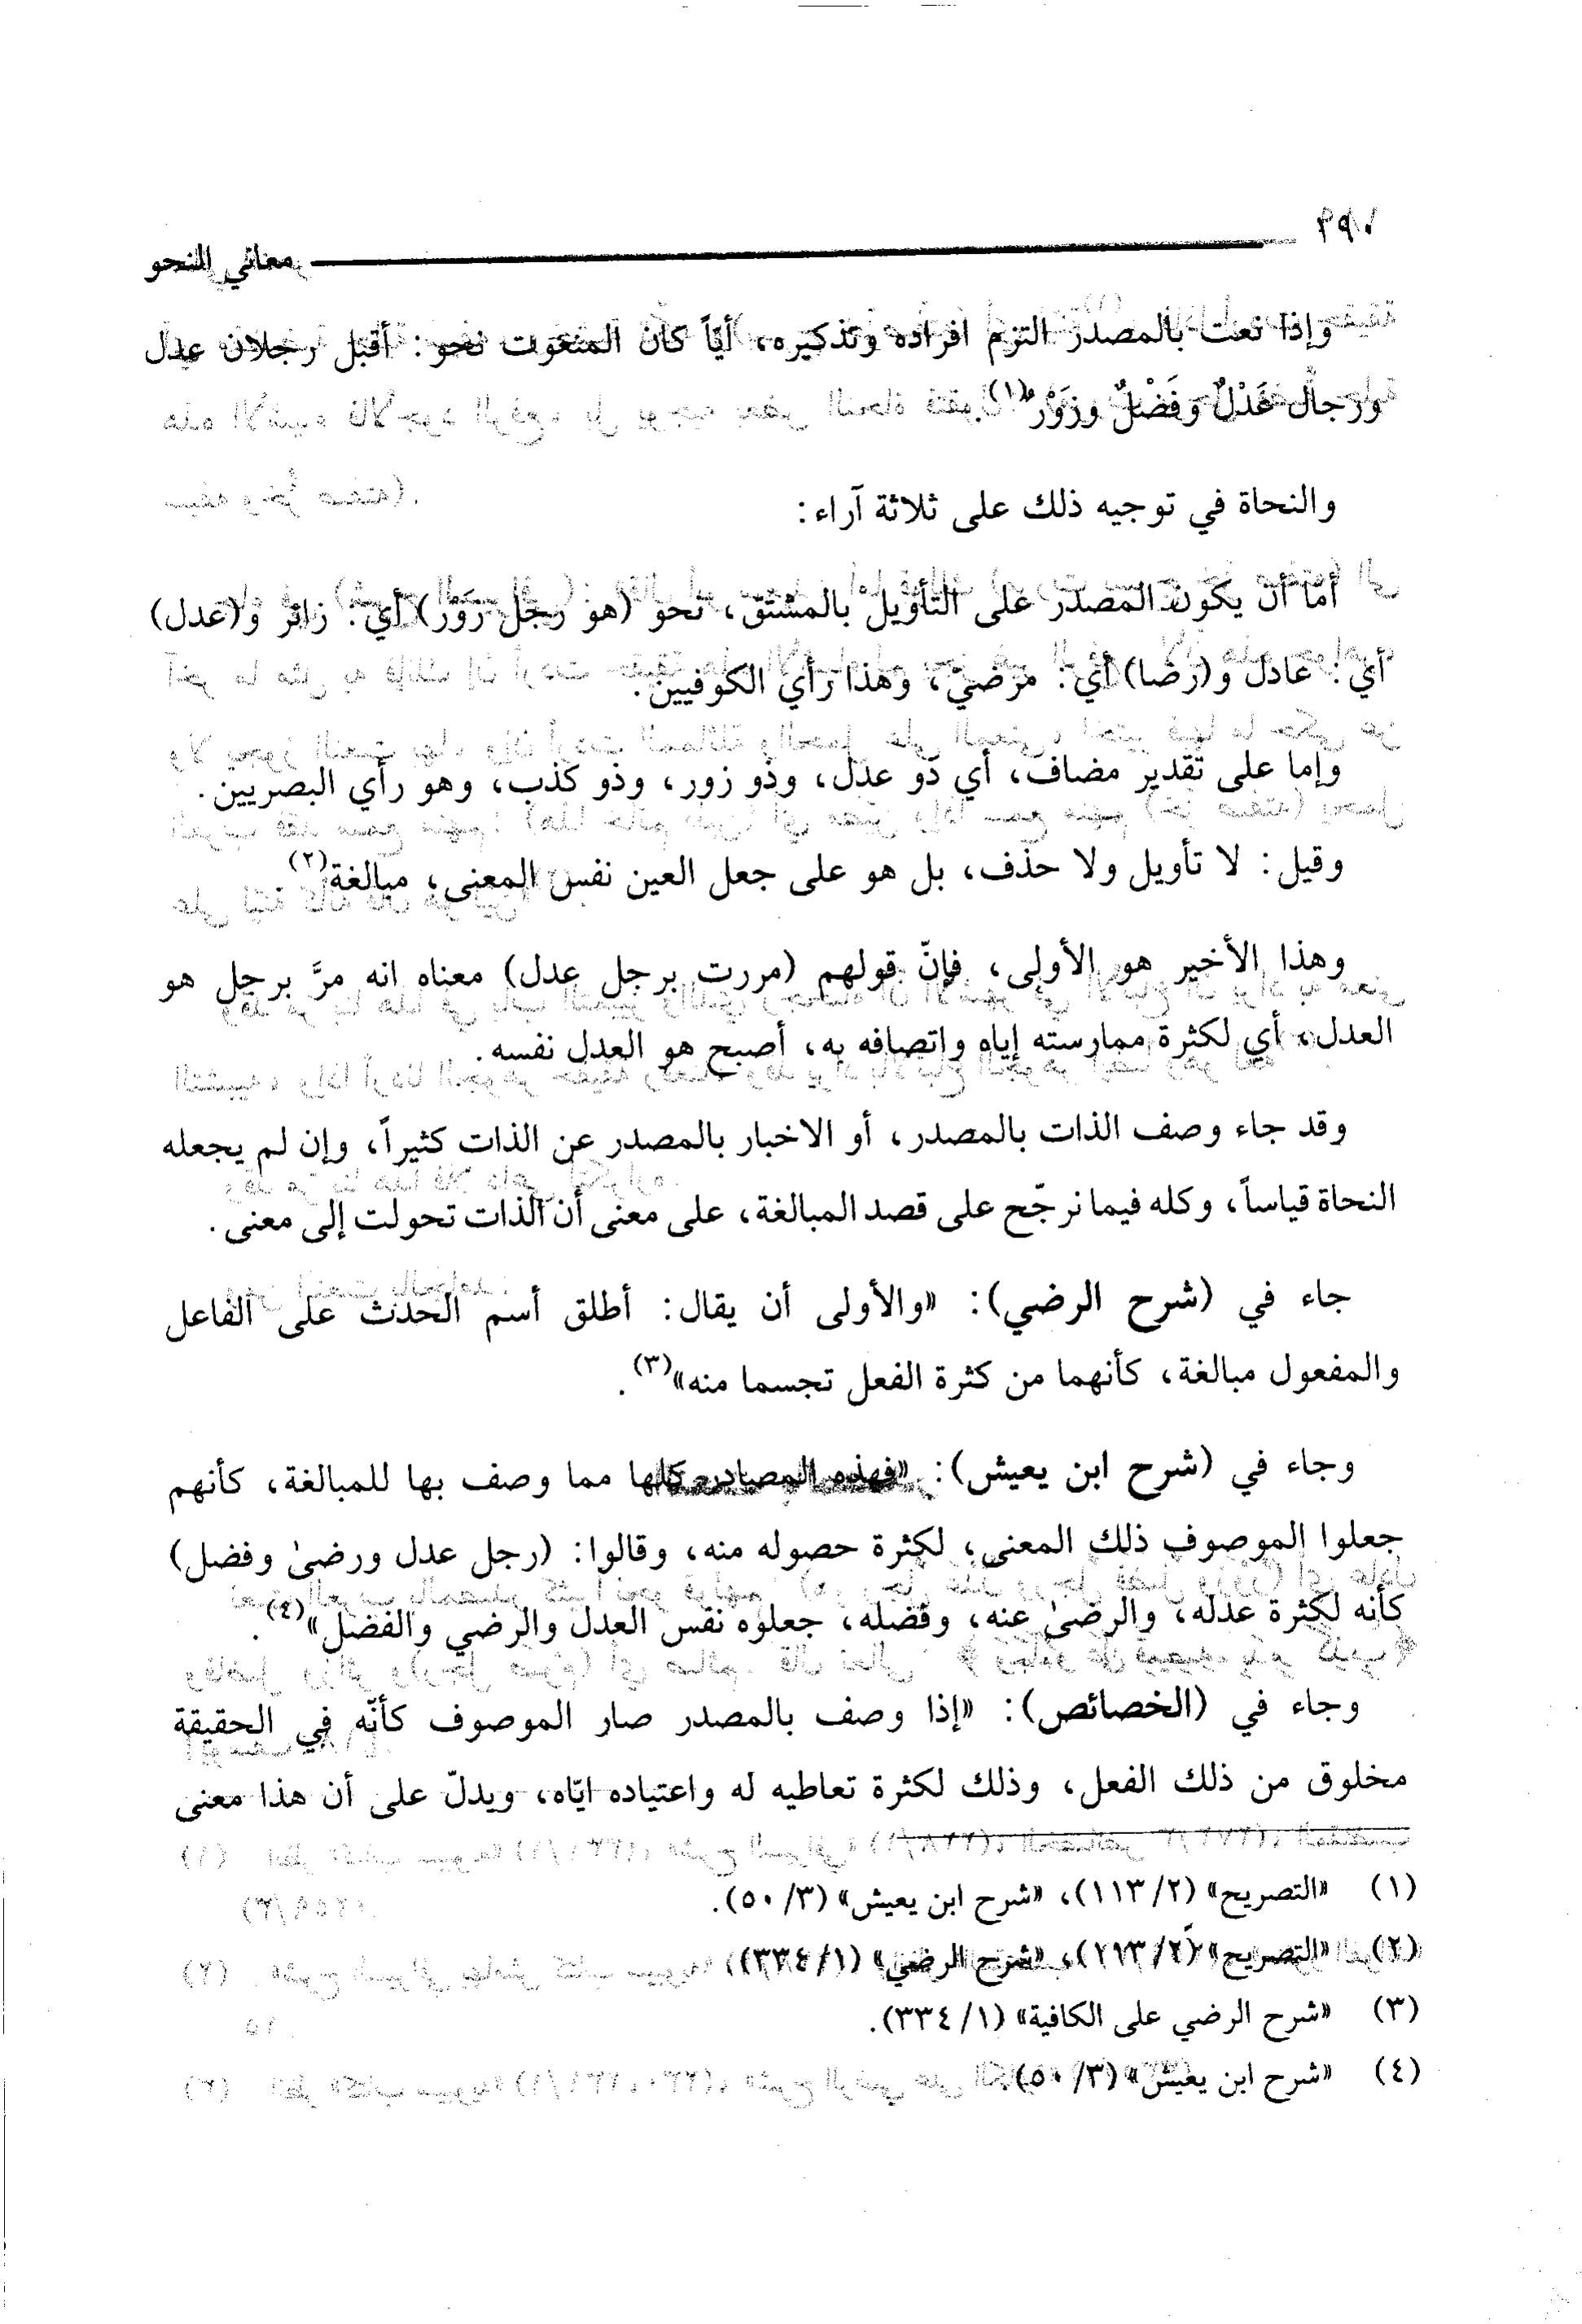 معاني النحو
وإذا نعت بالمصدر التزم افراده وتذكيره، أيّاً كان المنعوت نحو: أقبل رجلان عدل
ورجال عَدْلٌ وفَضْلٌ وزَوْرٌ(١).
والنحاة في توجيه ذلك على ثلاثة آراء:
أمّا أن يكون المصدر على التأويل بالمشتق، نحو (هو رجل زَوْر) أي: زائر و(عدل)
أي: عادل و(رضا) أي: مرضيّ، وهذا رأي الكوفيين.
وإما على تقدير مضاف، أي ذو عدل، وذو زور، وذو كذب، وهو رأي البصريين.
وقيل: لا تأويل ولا حذف، بل هو على جعل العين نفس المعنى، مبالغة(٢)
وهذا الأخير هو الأولى، فإنّ قولهم (مررت برجل عدل) معناه انه مرَّ برجل هو
العدل، أي لكثرة ممارسته إياه واتصافه به، أصبح هو العدل نفسه.
وقد جاء وصف الذات بالمصدر، أو الاخبار بالمصدر عن الذات كثيراً، وإن لم يجعله
النحاة قياساً، وكله فيما نرجّح على قصد المبالغة، على معنى أن الذات تحولت إلى معنى.
جاء في (شرح الرضي): «والأولى أن يقال: أطلق أسم الحدث على الفاعل
والمفعول مبالغة، كأنهما من كثرة الفعل تجسما منه»(٣).
وجاء في (شرح ابن يعيش): «فهذه المصادر كلها مما وصف بها للمبالغة، كأنهم
جعلوا الموصوف ذلك المعنى، لكثرة حصوله منه، وقالوا: (رجل عدل ورضىٰ وفضل)
كأنه لكثرة عدله، والرضىٰ عنه، وفضله، جعلوه نفس العدل والرضي والفضل»(٤).
وجاء في (الخصائص): «إذا وصف بالمصدر صار الموصوف كأنّه في الحقيقة
مخلوق من ذلك الفعل، وذلك لكثرة تعاطيه له واعتياده ايّاه، ويدلّ على أن هذا معنى
(١) «التصريح» (٢/ ١١٣)، «شرح ابن يعيش» (٣/ ٥٠).
(٢) «التصريح» (٢/ ١١٣)، «شرح الرضي» (١/ ٣٣٤)
(٣) «شرح الرضي على الكافية» (١/ ٣٣٤).
(٤) «شرح ابن يعيش» (٣/ ٥٠).